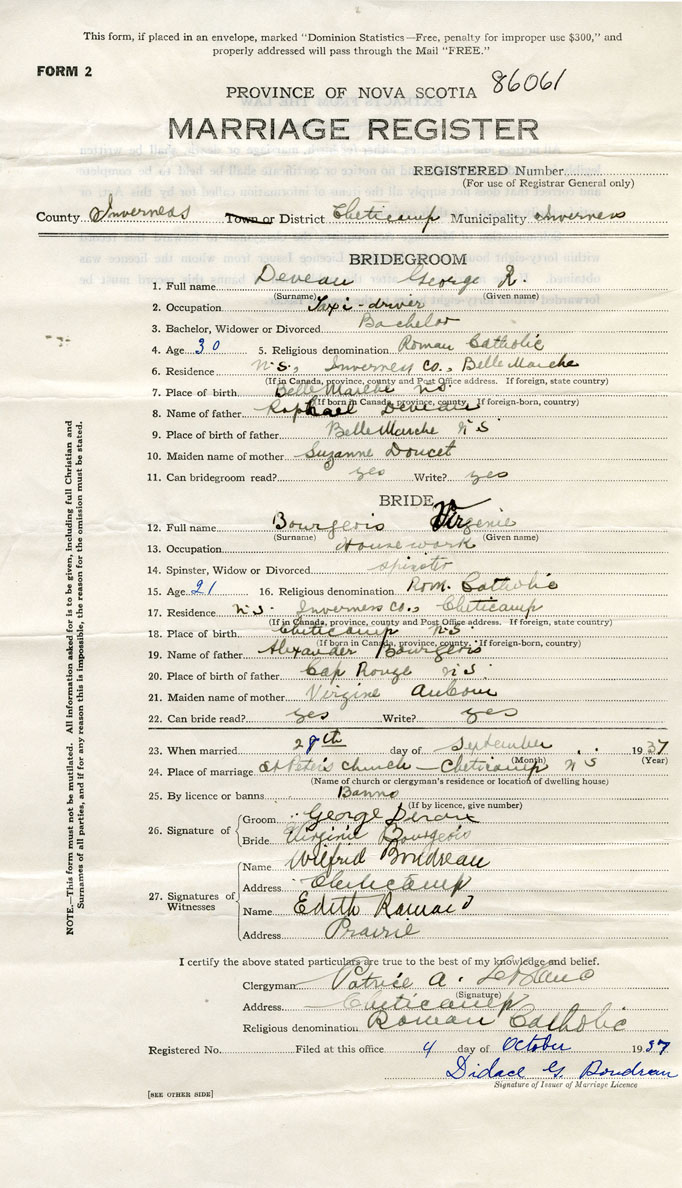 This form, if placed in an envelope, marked "Dominion Statistics—Free, penalty for improper use $300," and
properly addressed will pass through the Mail "FREE."
FORM 2
PROVINCE OF NOVA SCOTIA 86061
MARRIAGE REGISTER
REGISTERED Number
(For use of Registrar General only)
County Inverness Town or District Cheticamp Municipality Inverness
BRIDEGROOM
1. Full name Deveau George R.
(Surname) (Given name)
2. Occupation Taxi-driver
3. Bachelor, Widower or Divorced Bachelor
4. Age 30 5. Religious denomination Roman Catholic
6. Residence N.S., Inverness Co., Belle Marche
(If in Canada, province, county and Post Office address. If foreign, state country)
7. Place of birth Belle Marche N.S.
(If born in Canada, province, county. If foreign-born, country)
8. Name of father Raphael Deveau
9. Place of birth of father Belle Marche N S
10. Maiden name of mother Suzanne Doucet
11. Can bridegroom read? yes Write? yes
BRIDE
12. Full name Bourgeois Virgenie
(Surname) (Given name)
13. Occupation Housework
14. Spinster, Widow or Divorced spinster
15. Age 21 16. Religious denomination Rom. Catholic
17. Residence N.S. Inverness Co., Cheticamp
(If in Canada, province, county and Post Office address. If foreign, state country)
18. Place of birth Cheticamp N.S.
(If born in Canada, province, county. If foreign-born, country)
19. Name of father Alexander Bourgeois
20. Place of birth of father Cap Rouge N S.
21. Maiden name of mother Virgine AuCoin
22. Can bride read? yes Write? yes
23. When married 28th day of September 1937
(Month) (Year)
24. Place of marriage St Peter's church — Cheticamp N S
(Name of church or clergyman's residence or location of dwelling house)
25. By licence or banns Banns
(If by licence, give number)
26. Signature of
Groom George Devau
Bride Virginie Bourgeois
27. Signatures of Witnesses
Name Wilfrid Boudreau
Address Cheticamp
Name Edith
Address Prairie
I certify the above stated particulars are true to the best of my knowledge and belief.
Clergyman Patrice A. LeBlanc
(Signature)
Address Cheticamp
Religious denomination Roman Catholic
Registered No. Filed at this office 4 day of October 1937
Didace G. Boudreau
Signature of Issuer of Marriage Licence
[SEE OTHER SIDE]
NOTE.—This form must not be mutilated. All information asked for is to be given, including full Christian and
Surnames of all parties, and if for any reason this is impossible, the reason for the omission must be stated.